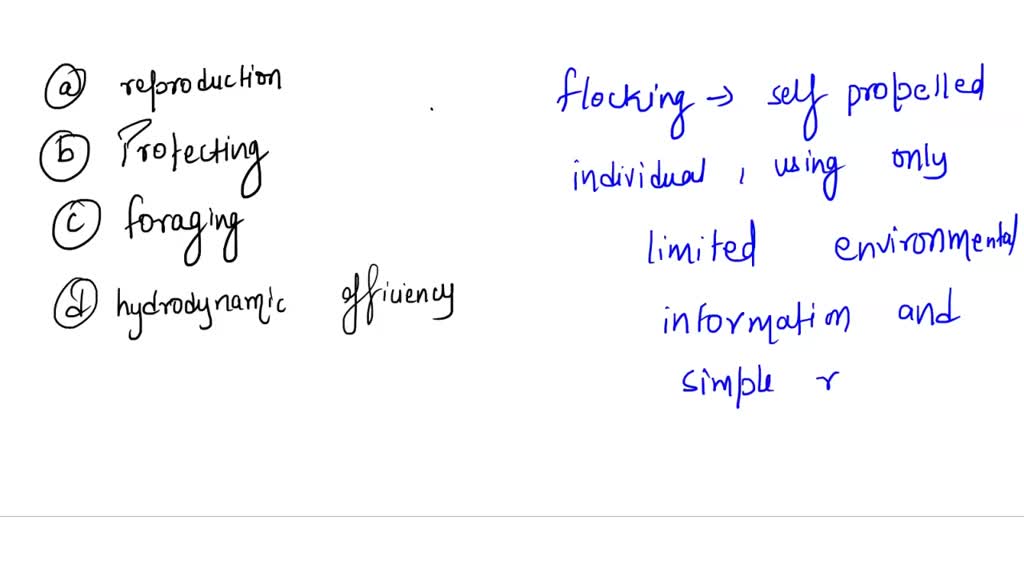 a reproduction
b Protecting
c foraging
d hydrodynamic efficiency
flocking → self propelled
individual, using only
limited environmental
information and
simple r